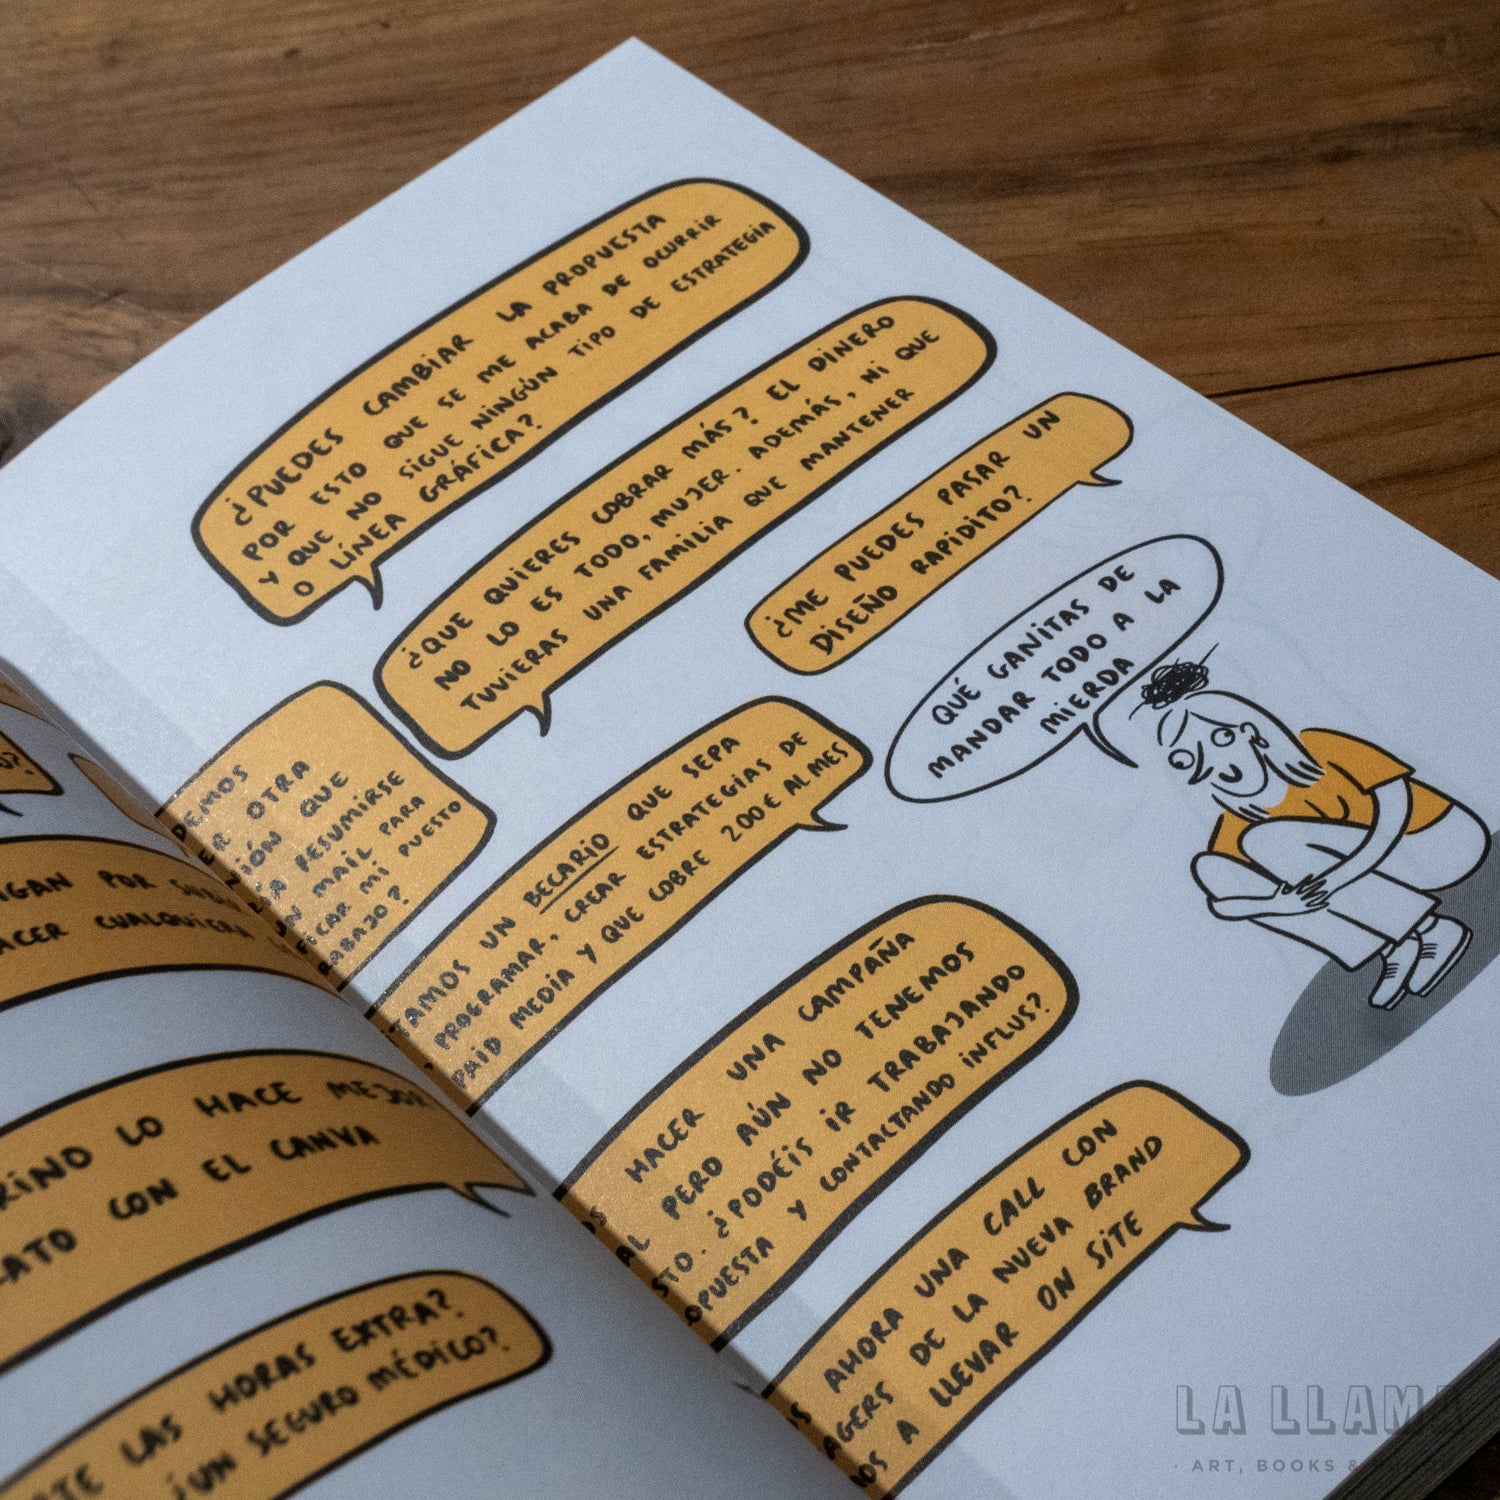 ¿PUEDES CAMBIAR LA PROPUESTA
POR ESTO QUE SE ME ACABA DE OCURRIR
Y QUE NO SIGUE NINGÚN TIPO DE ESTRATEGIA
O LÍNEA GRÁFICA?
¿QUE QUIERES COBRAR MÁS? EL DINERO
NO LO ES TODO, MUJER. ADEMÁS, NI QUE
TUVIERAS UNA FAMILIA QUE MANTENER
¿ME PUEDES PASAR UN
DISEÑO RAPIDITO?
QUÉ GANITAS DE
MANDAR TODO A LA
MIERDA
OTRA
QUE
RESUMIRSE
MAIL PARA
MI PUESTO
UN BECARIO QUE SEPA
PROGRAMAR, CREAR ESTRATEGIAS DE
PAID MEDIA Y QUE COBRE 200€ AL MES
HACER UNA CAMPAÑA
PERO AÚN NO TENEMOS
¿PODÉIS IR TRABAJANDO
Y CONTACTANDO INFLUS?
AHORA UNA CALL CON
DE LA NUEVA BRAND
A LLEVAR ON SITE
POR
CUALQUIERA
LO HACE MEJOR
CON EL CANVA
LAS HORAS EXTRA?
¿UN SEGURO MÉDICO?
LA LLAMA
ART, BOOKS &